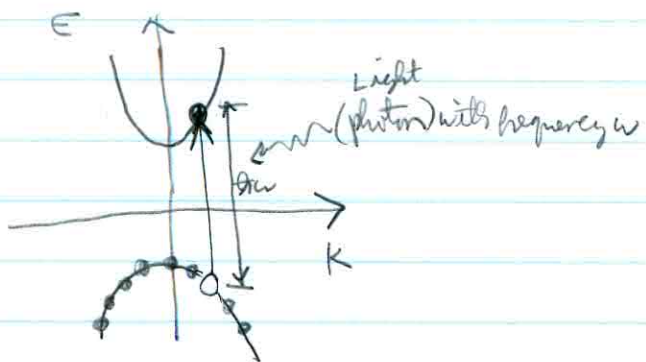 ϵ
Light
(photon) with frequency ω
ħω
K